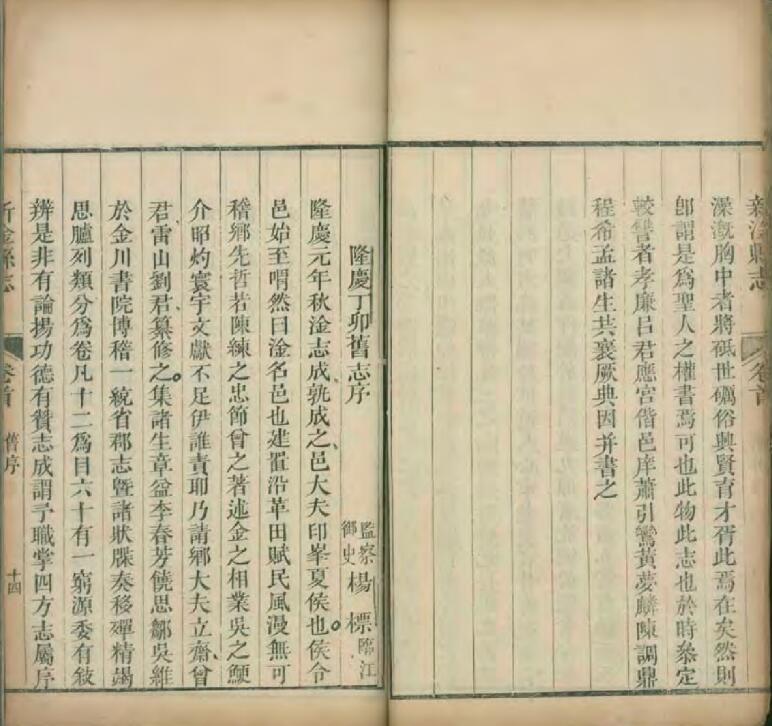 新淦縣志
卷首
澡溉胸中者將砥世礪俗興賢育才胥此焉在矣然則
卽謂是爲聖人之權書焉可也此物此志也於時叅定
較讐者孝廉呂君應宮偕邑庠蕭引鸞黃夢麟陳調鼎
程希孟諸生共襄厥典因并書之
隆慶丁卯舊志序
監察御史楊標臨江
隆慶元年秋淦志成孰成之邑大夫印峯夏侯也侯令
邑始至喟然曰淦名邑也建置沿革田賦民風漫無可
稽鄉先哲若陳練之忠節曾之著述金之相業吳之鯁
介昭灼寰宇文獻不足伊誰責耶乃請鄉大夫立齋曾
君雷山劉君纂修之集諸生章益李春芳饒思鄒吳維
於金川書院博稽一統省郡志曁諸狀牒奏移殫精竭
思臚列類分爲卷凡十二爲目六十有一窮源委有敍
辨是非有論揚功德有贊志成謂予職掌四方志屬序
新淦縣志
卷首
舊序
十四